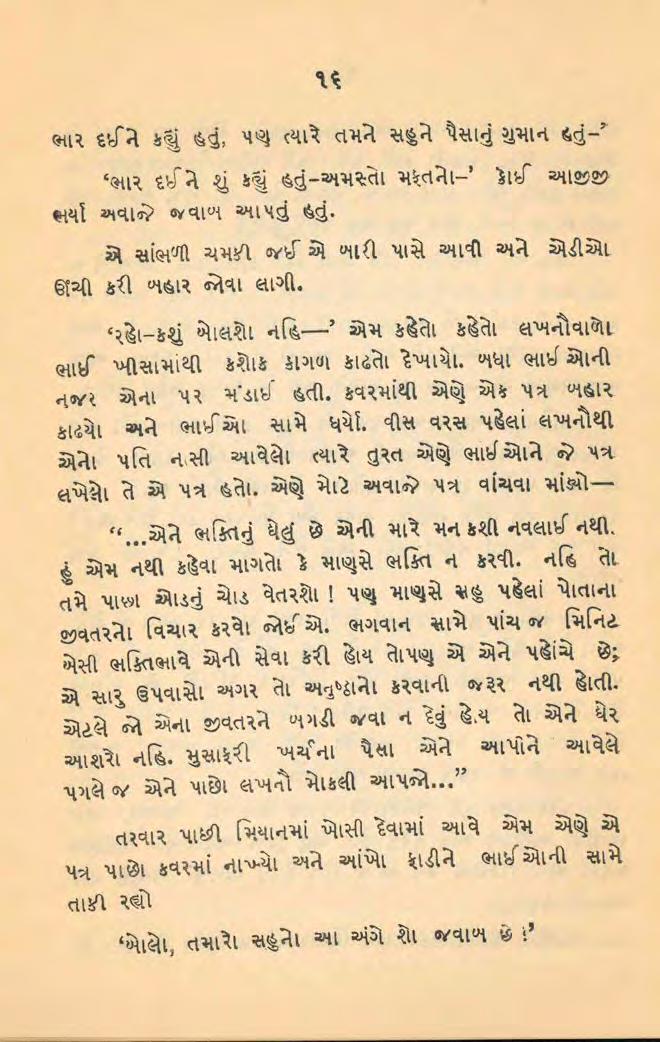 ૧૬
ભાર દઈને કહ્યું હતું, પણ ત્યારે તમને સહુને પૈસાનું ગુમાન હતું–’
‘ભાર દઈને શું કહ્યું હતું–અમસ્તો મફતનો–’ કોઈ આજીજી
ભર્યા અવાજે જવાબ આપતું હતું.
એ સાંભળી ચમકી જઈ એ બારી પાસે આવી અને એડીઓ
ઊંચી કરી બહાર જોવા લાગી.
‘રહો–કશું બોલશો નહિ—’ એમ કહેતો કહેતો લખનૌવાળો
ભાઈ ખીસામાંથી કશોક કાગળ કાઢતો દેખાયો. બધા ભાઈઓની
નજર એના પર મંડાઈ હતી. કવરમાંથી એણે એક પત્ર બહાર
કાઢયો અને ભાઈઓ સામે ધર્યો. વીસ વરસ પહેલાં લખનૌથી
એનો પતિ નાસી આવેલો ત્યારે તુરત એણે ભાઈઓને જે પત્ર
લખેલો તે એ પત્ર હતો. એણે મોટે અવાજે પત્ર વાંચવા માંડ્યો—
“...એને ભક્તિનું ઘેલું છે એની મારે મન કશી નવલાઈ નથી.
હું એમ નથી કહેવા માગતો કે માણસે ભક્તિ ન કરવી. નહિ તો
તમે પાછા ઓડનું ચોડ વેતરશો ! પણ માણસે સહુ પહેલાં પોતાના
જીવતરનો વિચાર કરવો જોઈએ. ભગવાન સામે પાંચ જ મિનિટ
બેસી ભક્તિભાવે એની સેવા કરી હોય તોપણ એ એને પહોંચે છે;
એ સારુ ઉપવાસો અગર તો અનુષ્ઠાનો કરવાની જરૂર નથી હોતી.
એટલે જો એના જીવતરને બગડી જવા ન દેવું હોય તો એને ઘેર
આશરો નહિ. મુસાફરી ખર્ચના પૈસા એને આપીને આવેલે
પગલે જ એને પાછો લખનૌ મોકલી આપજો...”
તરવાર પાછી મિયાનમાં ખોસી દેવામાં આવે એમ એણે એ
પત્ર પાછો કવરમાં નાખ્યો અને આંખો ફાડીને ભાઈઓની સામે
તાકી રહ્યો
‘બોલો, તમારો સહુનો આ અંગે શો જવાબ છે ?’